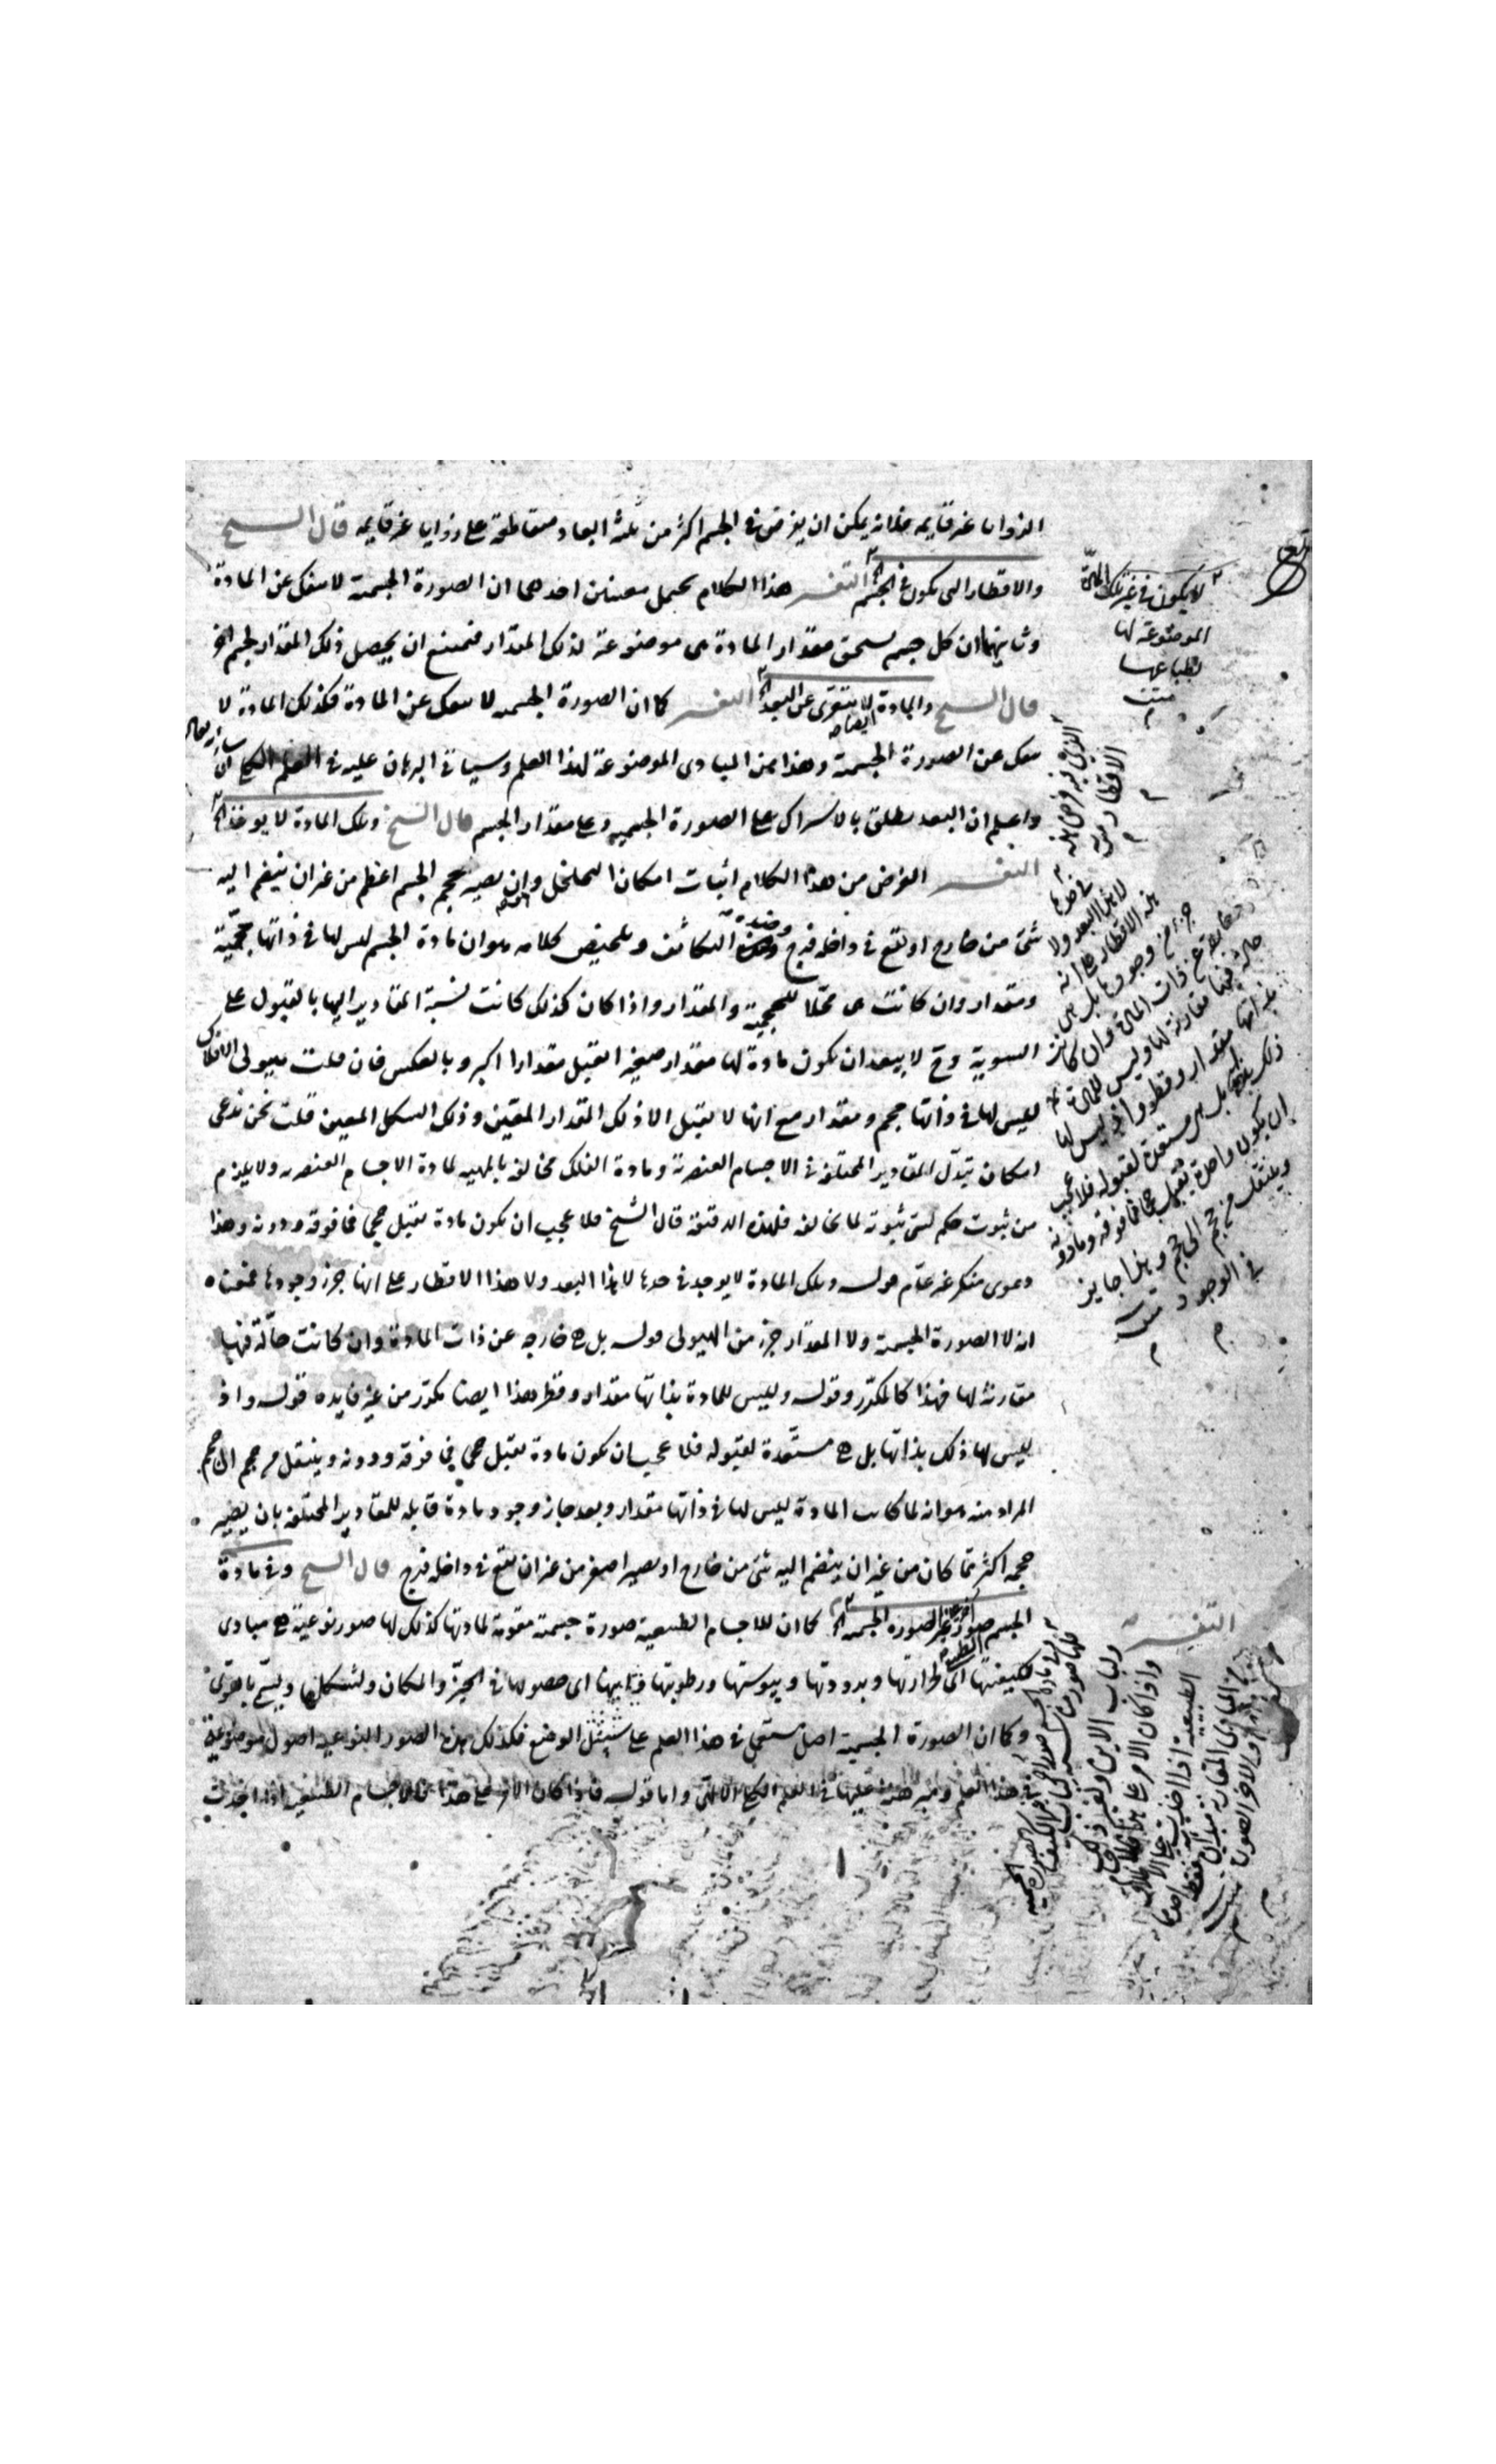 الزوايا غير قايمه فانه يمكن ان يفرض فى الجسم اكثر من ثلثة ابعاد متقاطعة على زوايا غير قايمه قال الشيخ
والاقطار التى تكون فى الجسم التفسير هذا الكلام يحتمل معنيين احدهما ان الصورة الجسمية لا تنفك عن المادة
وثانيهما ان كل جسم يستحق مقدار المادة هى موضوعة لذلك المقدار فيمتنع ان يحصل ذلك المقدار لجسم اخر
قال الشيخ والمادة لا تتعرى عن البعد التفسير كما ان الصورة الجسمية لا تنفك عن المادة فكذلك المادة لا
تنفك عن الصورة الجسمية وهذا من المبادى الموضوعة لهذا العلم وسياتى البرهان عليه فى العلم الكلى ان
واعلم ان البعد يطلق بالاشتراك على الصورة الجسمية وعلى مقدار الجسم قال الشيخ وتلك المادة لا يوخذ
التفسير الغرض من هذا الكلام اثبات امكان التخلخل وان يصير حجم الجسم اعظم من غير ان ينضم اليه
شئ من خارج او تقع فى داخله فرج وضده التكاثف وتلخيص كلامه هو ان مادة الجسم ليس لها فى ذاتها حجمية
ومقدار وان كانت هى محلا للحجمية والمقدار واذا كان كذلك كانت نسبة المقادير اليها بالقبول على
السوية وح لا يبعد ان تكون مادة لها مقدار صغير تقبل مقدارا اكبر وبالعكس فان قلت هيولى الافلاك
ليس لها فى ذاتها حجم ومقدار مع انها لا تقبل الا ذلك المقدار المعين وذلك الشكل المعين قلت نحن ندعى
امكان تبدل المقادير المختلفة فى الاجسام العنصرية ومادة الفلك مخالفة بالمهيه لمادة الاجسام العنصريه ولا يلزم
من ثبوت حكم لشئ ثبوته لما يخالفه فلهذه الدقيقة قال الشيخ فلا عجيب ان تكون مادة تقبل حجما فما فوقه ودونه وهذا
دعوى منكر غير عام قوله وتلك المادة لا يوجد فى حدها لا هذا البعد ولا هذا الاقطار على انها جزء وجودها معناه
انه لا الصورة الجسمية ولا المقدار جزء من الهيولى قوله بل هى خارجه عن ذات المادة وان كانت حالة فيها
مقارنة لها فهذا كالمكرر وقوله وليس للمادة بذاتها مقدار وقطر هذا ايضا مكرر من غير فايده قوله واذ
ليس لها ذلك بذاتها بل هى مستعدة لقبوله فلا عجب ان تكون مادة تقبل حجما فى فوقه ودونه وينتقل من حجم الى حجم
المراد منه هو انه لما كانت المادة ليس لها فى ذاتها مقدار وبعد جاز وجود مادة قابله للمقادير المختلفه بان يصير
حجمه اكثر مما كان من غير ان ينضم اليه شئ من خارج او يصير اصغر من غير ان تقع فى داخله فرج قال الشيخ وفى مادة
الجسم صور غير الصورة الجسمية كما ان للاجسام الطبيعية صورة جسمية مقومة لمادتها كذلك لها صور نوعية هى مبادى
لكيفيتها اى لحرارتها وبرودتها ويبوستها ورطوبتها ولاينها اى حصولها فى الحيز والمكان ولشكلها ويسمى باقوى
وكما ان الصورة الجسمية اصل فى هذا العلم على سبيل الوضع فكذلك هذه الصور النوعيه اصول موضوعة
فى هذا العلم ومبرهنة عليها فى العلم الكلى الالهى واما قوله فاذا كان الامر على هذا فالاجسام الطبيعية اذا اخذت
لا يكون فى غير تلك المادة
الموضوعة لها
بطباعها
متن
لا هذا البعد ولا
هذه الاقطار على انه
جزء من وجودها بل هى
خارجة عن ذات المادة وان كانت
حالة فيها مقارنة لها وليس للمادة
بذاتها مقدار وقطر واذ ليس لها
ذلك بذاتها بل هى مستعدة لقبوله فلا عجب
ان يكون واحدة تقبل حجما فما فوقه وما دونه
وينتقل من حجم الى حجم وهذا جايز
فى الوجود متن
التفسير